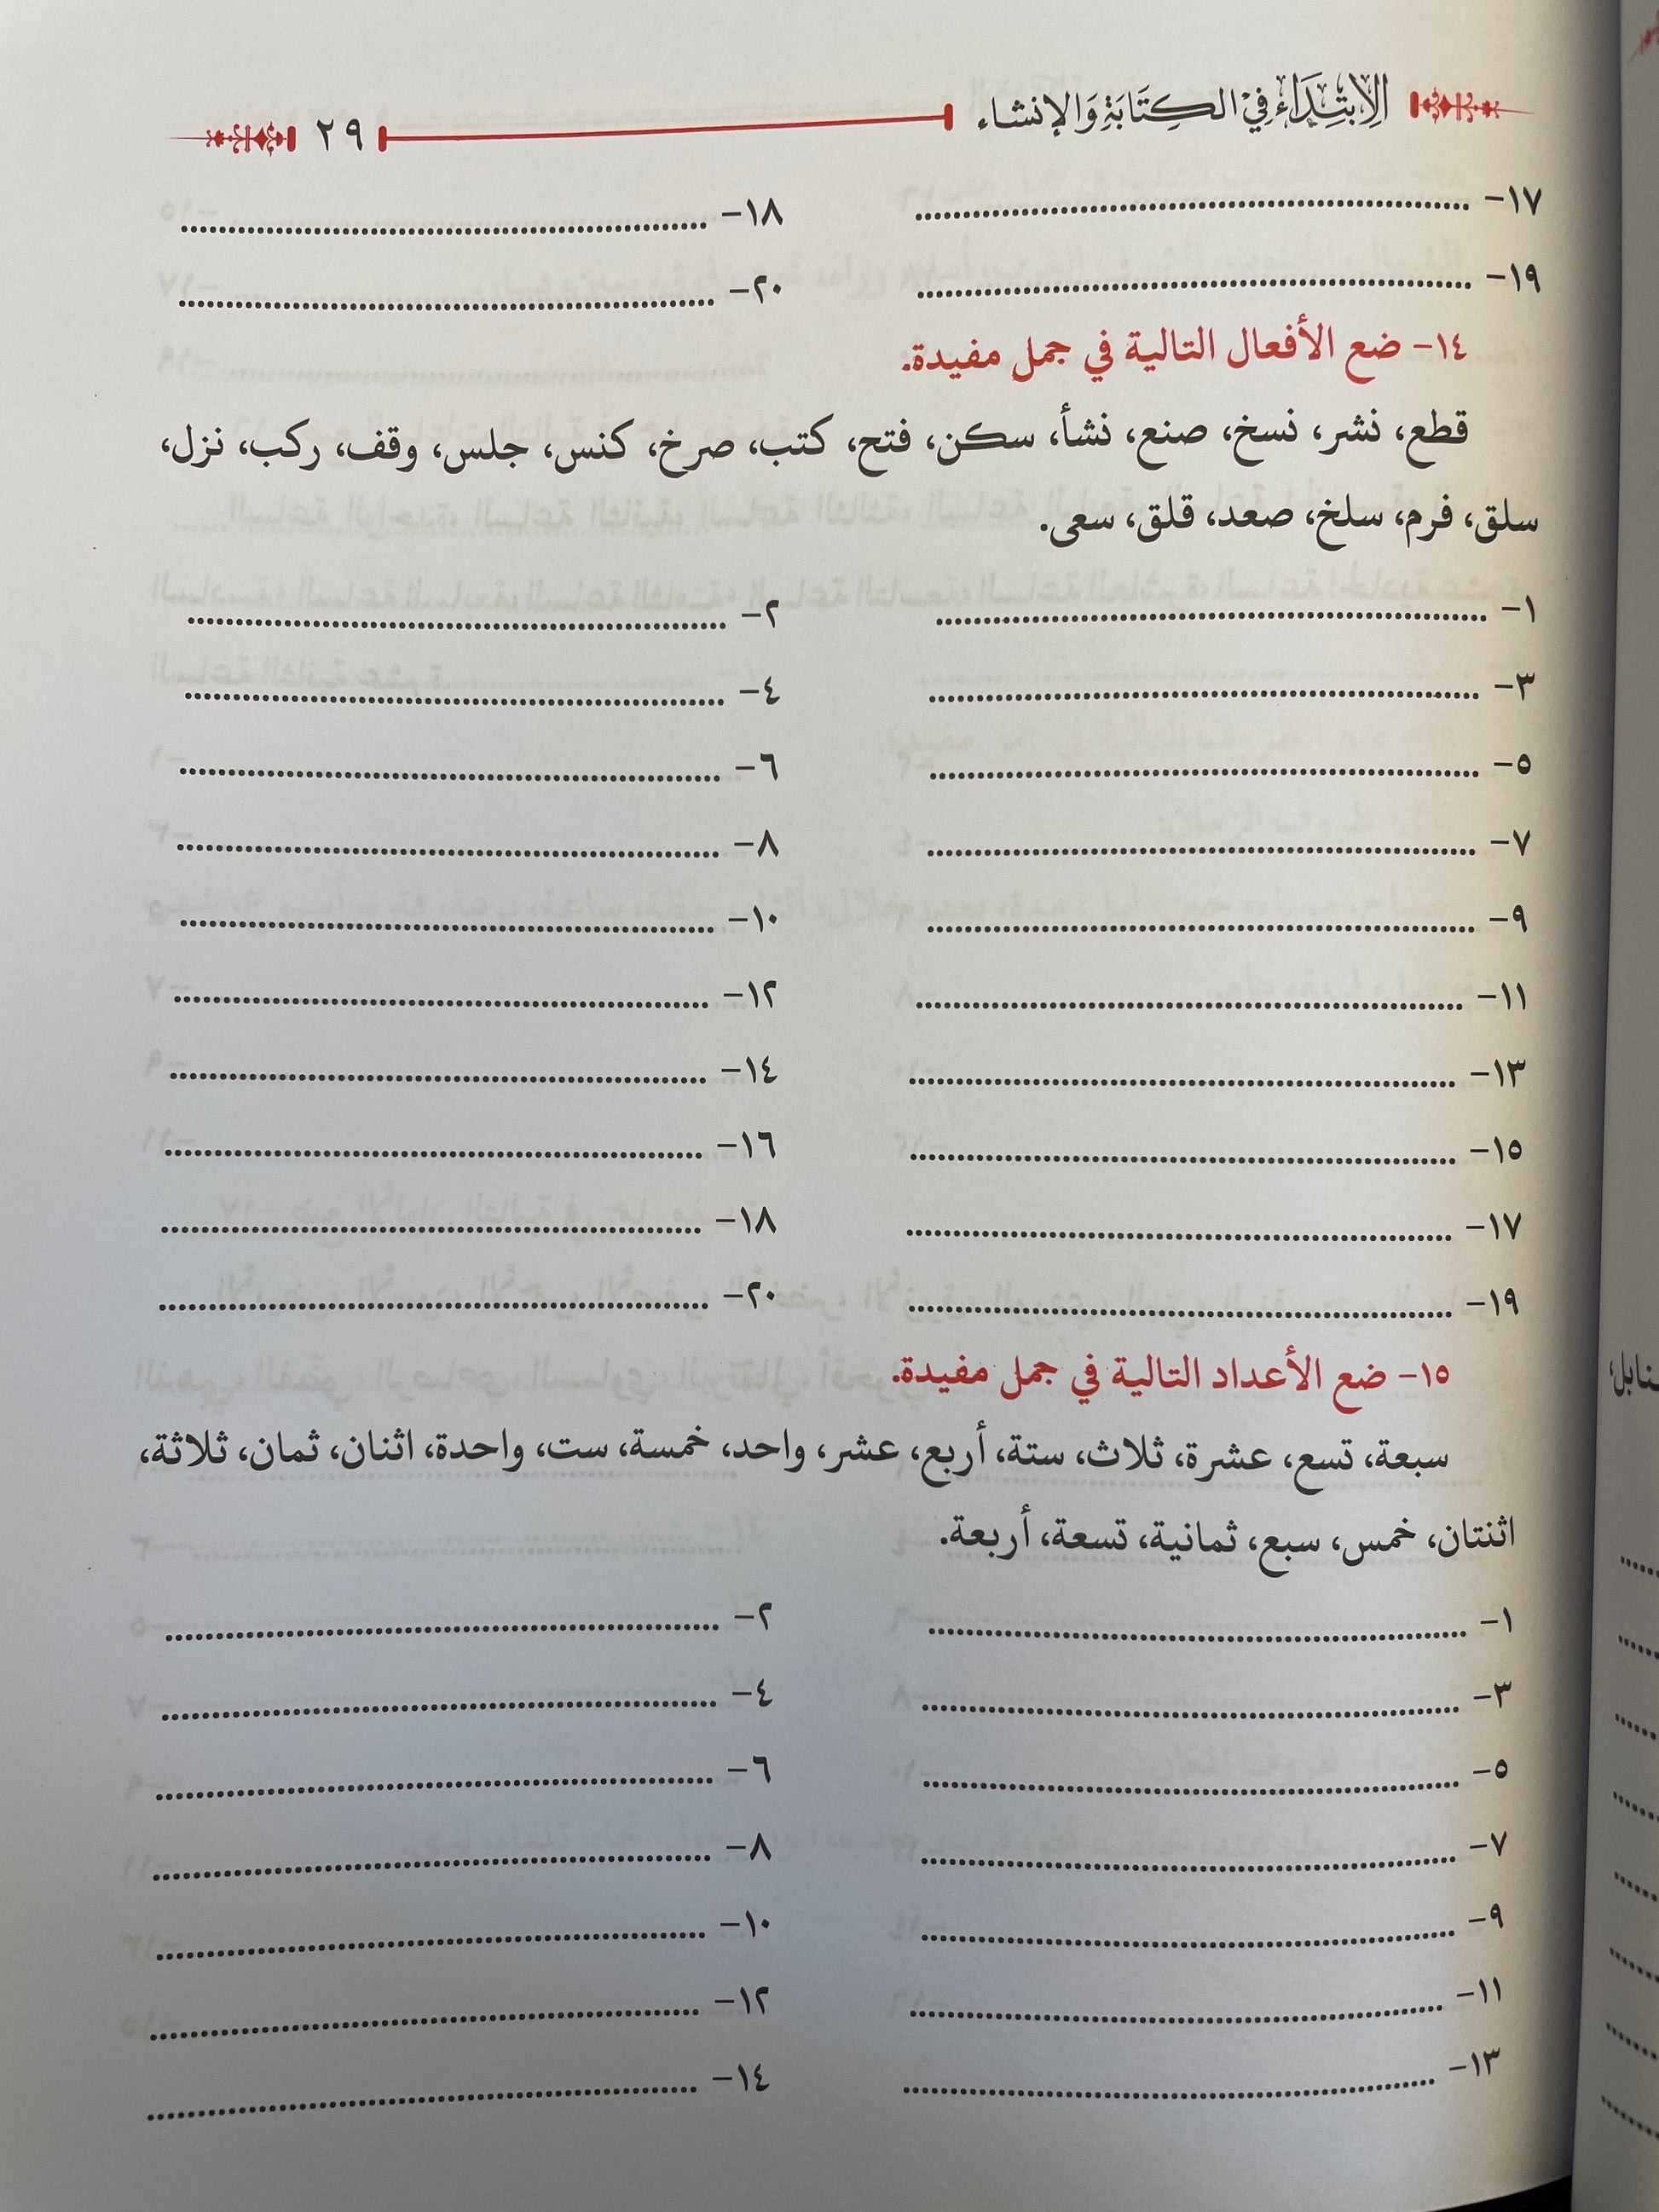 الِابْتِدَاءُ فِي الكِتَابَةِ وَالإنشاء ٢٩
١٧- ........................ ١٨- ........................
١٩- ........................ ٢٠- ........................
١٤- ضع الأفعال التالية في جمل مفيدة.
قطع، نشر، نسخ، صنع، نشأ، سكن، فتح، كتب، صرخ، كنس، جلس، وقف، ركب، نزل،
سلق، فرم، سلخ، صعد، قلق، سعى.
١- ........................ ٢- ........................
٣- ........................ ٤- ........................
٥- ........................ ٦- ........................
٧- ........................ ٨- ........................
٩- ........................ ١٠- ........................
١١- ........................ ١٢- ........................
١٣- ........................ ١٤- ........................
١٥- ........................ ١٦- ........................
١٧- ........................ ١٨- ........................
١٩- ........................ ٢٠- ........................
١٥- ضع الأعداد التالية في جمل مفيدة.
سبعة، تسع، عشرة، ثلاث، ستة، أربع، عشر، واحد، خمسة، ست، واحدة، اثنان، ثمان، ثلاثة،
اثنتان، خمس، سبع، ثمانية، تسعة، أربعة.
١- ........................ ٢- ........................
٣- ........................ ٤- ........................
٥- ........................ ٦- ........................
٧- ........................ ٨- ........................
٩- ........................ ١٠- ........................
١١- ........................ ١٢- ........................
١٣- ........................ ١٤- ........................